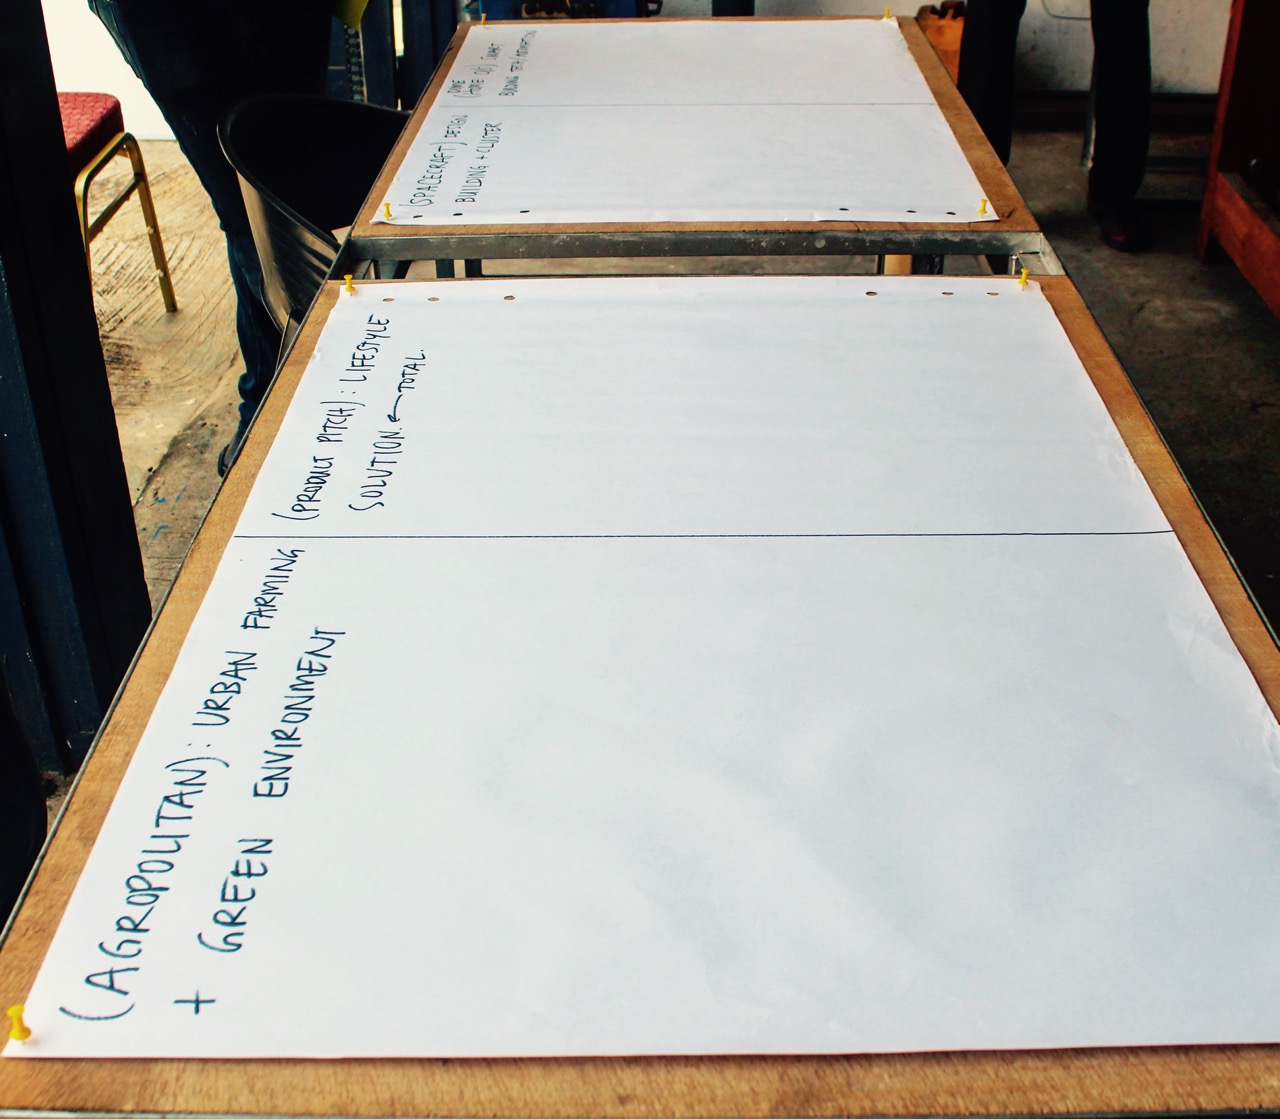 (AGROPOLITAN): URBAN FARMING
+ GREEN ENVIRONMENT
(PRODUCT PITCH): LIFESTYLE
SOLUTION. ← TOTAL.
(SPACECRAFT) DESIGN
BUILDING + CLUSTER
DOME
SMART
BUILDING